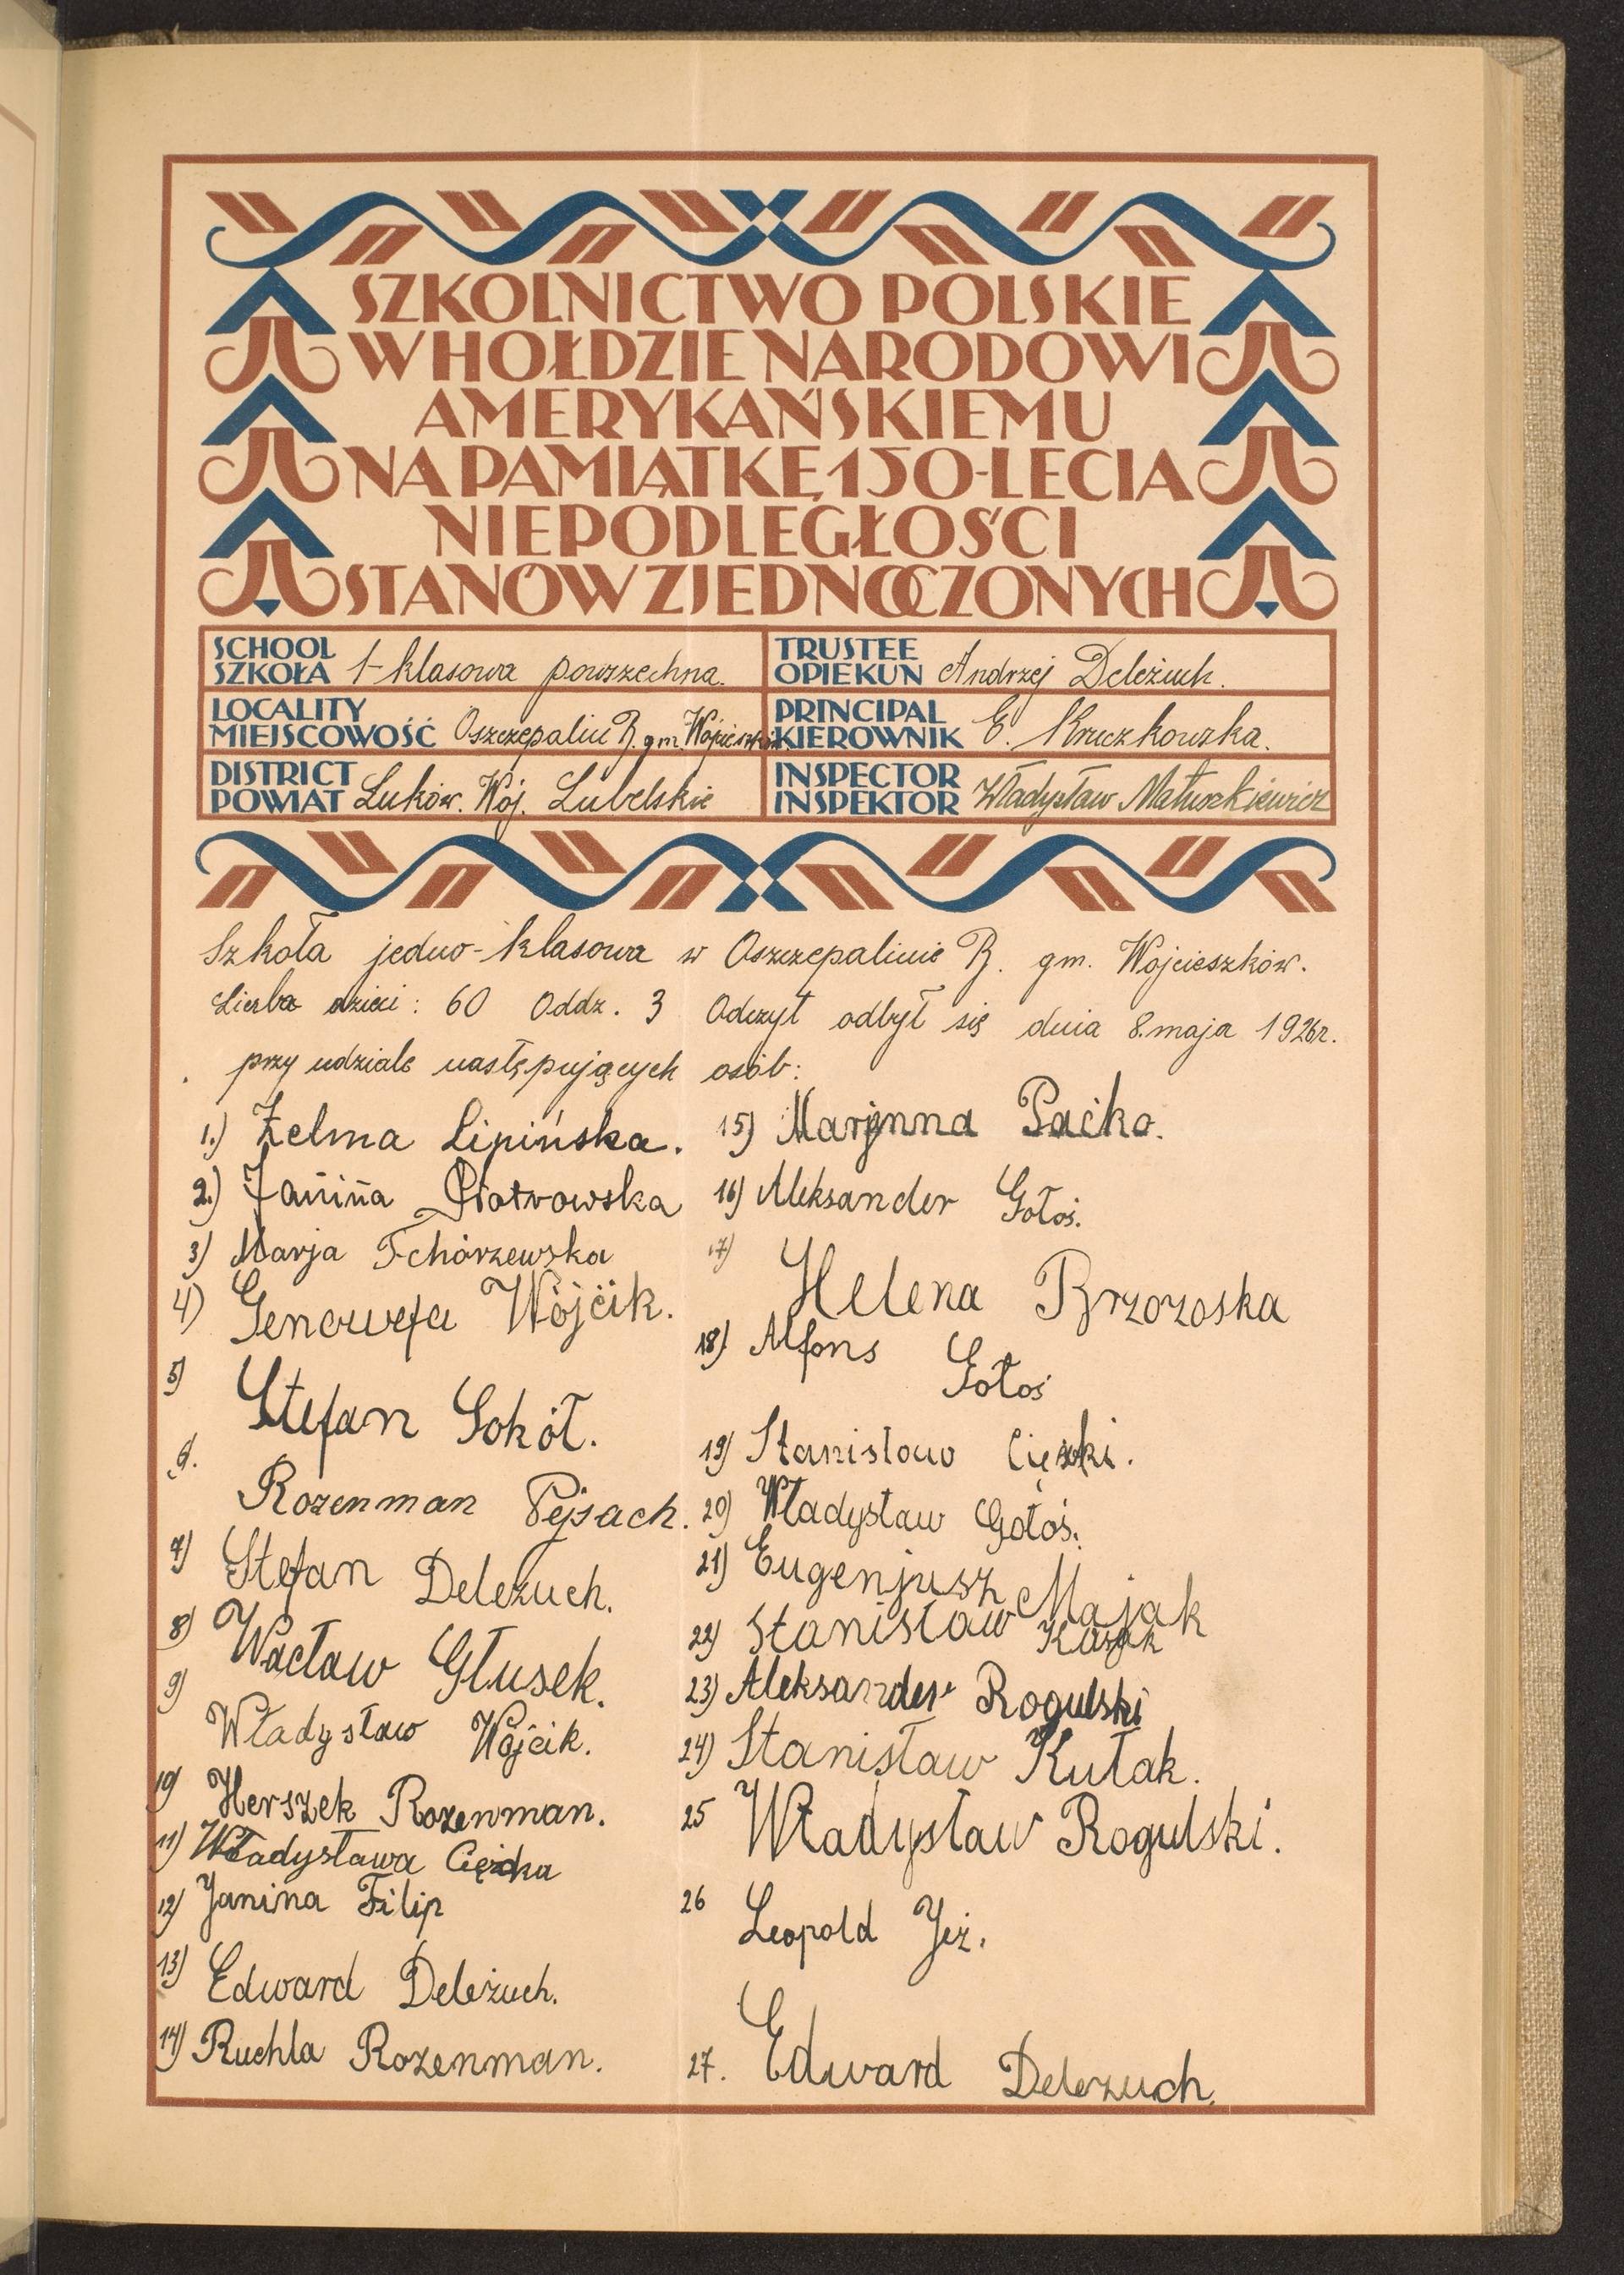 SZKOLNICTWO POLSKIE
W HOŁDZIE NARODOWI
AMERYKAŃSKIEMU
NA PAMIĄTKĘ 150-LECIA
NIEPODLEGŁOŚCI
STANÓW ZJEDNOCZONYCH
SCHOOL
SZKOŁA 1-klasowa powszechna.
TRUSTEE
OPIEKUN Andrzej Deleżuch.
LOCALITY
MIEJSCOWOŚĆ Oszczepalin R. gm. Wojcieszków
PRINCIPAL
KIEROWNIK E. Kruczkowska.
DISTRICT
POWIAT Łuków. Woj. Lubelskie
INSPECTOR
INSPEKTOR Władysław Matuszkiewicz
Szkoła jedno-klasowa w Oszczepalinie R. gm. Wojcieszków.
Liczba dzieci: 60 Oddz. 3 Odczyt odbył się dnia 8. maja 1926r.
przy udziale następujących osób:
1.) Zelma Lipińska.
2.) Janina Piotrowska
3) Marja Tchórzewska
4) Genowefa Wójcik.
5) Stefan Sokół.
6. Rozenman Pejsach.
7) Stefan Deleżuch.
8) Wacław Głusek.
9) Władysław Wójcik.
10) Herszek Rozenman.
11) Władysława Ciężka
12) Janina Filip
13) Edward Deleżuch.
14) Ruchla Rozenman.
15) Marjnna Paćko.
16) Aleksander Gołoś.
17) Helena Brzozoska
18) Alfons Gołoś
19) Stanisław Ciężki.
20) Władysław Gołoś.
21) Eugenjusz Majak
22) Stanisław
23) Aleksander Rogulski
24) Stanisław Kułak.
25 Władysław Rogulski.
26 Leopold Jeż.
27. Edward Delezuch.